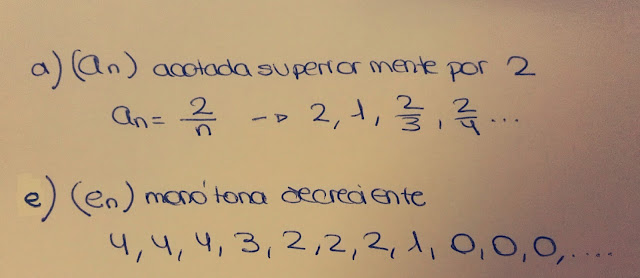 a) (an) acotada superior mente por 2
an = 2/n -▷ 2, 1, 2/3, 2/4 ...
e) (en) monótona decreciente
4, 4, 4, 3, 2, 2, 2, 1, 0, 0, 0, ....